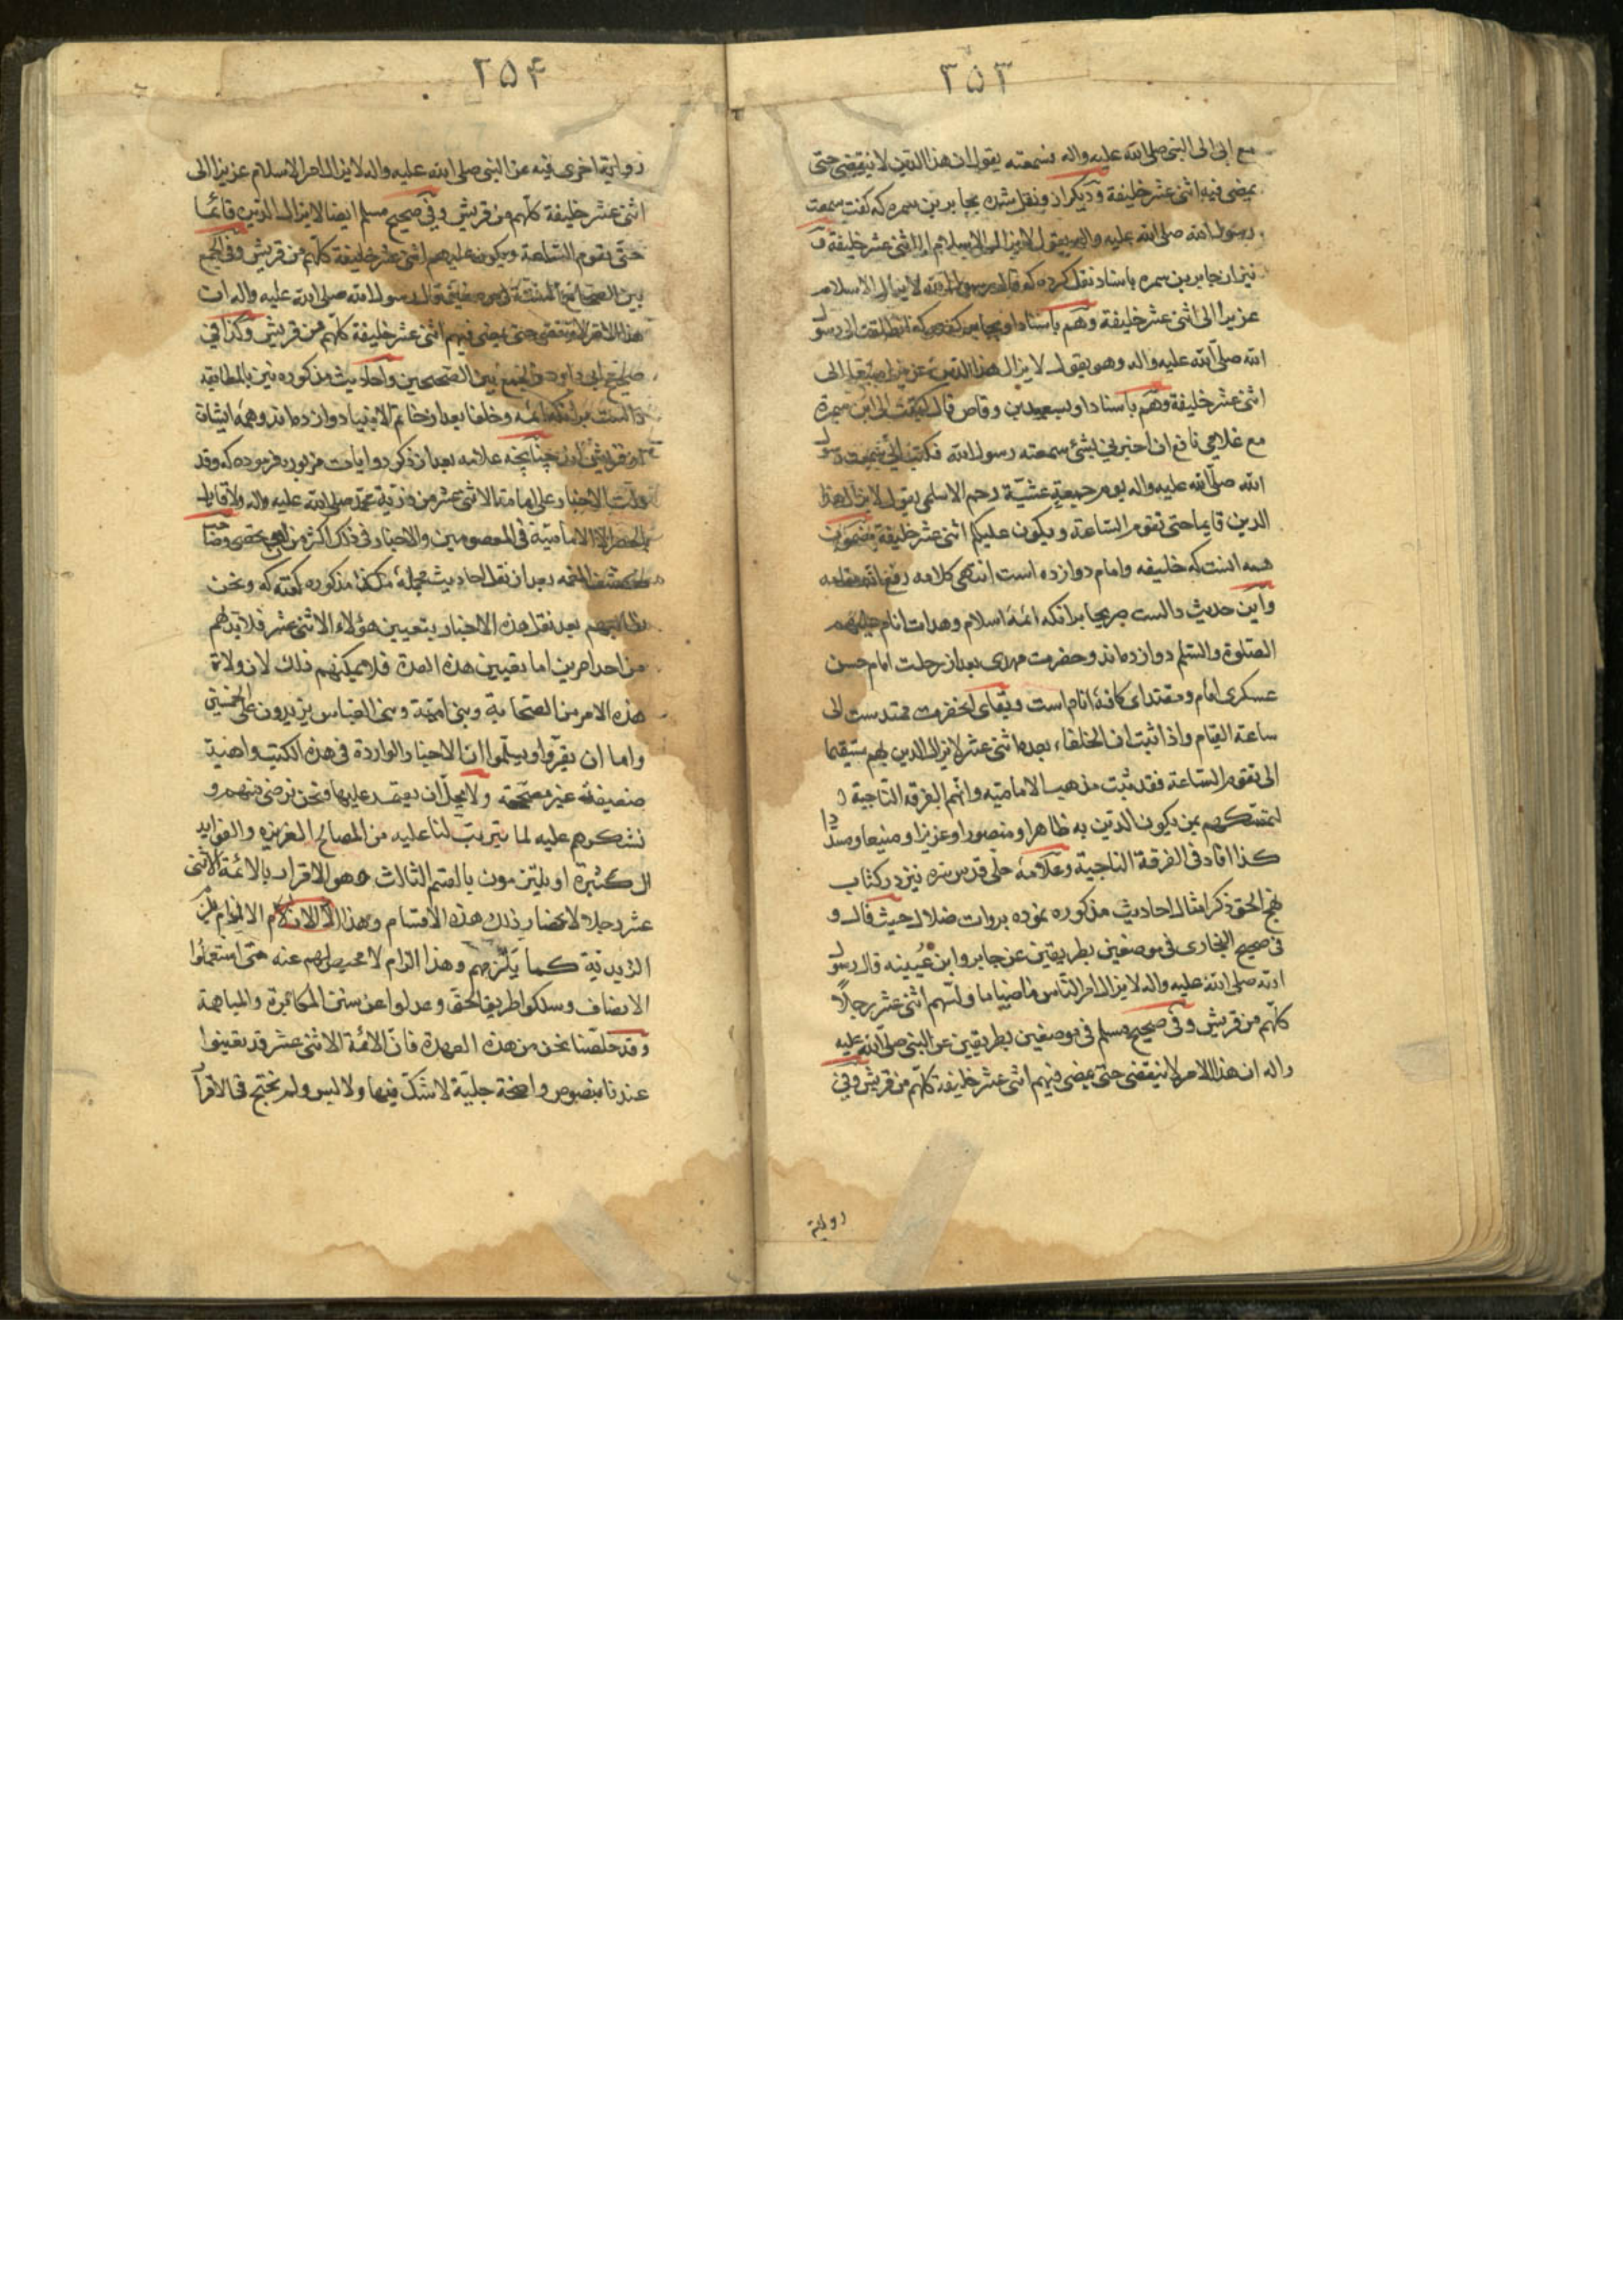 ۳۵۳
مع ابی الی النبی صلی الله علیه واله فسمعته یقول ان هذا الدین لا ینقضی حتی
یمضی فیه اثنی عشر خلیفة و دیگر از و نقل شده بجابر بن سمره که گفت سمعت
رسول الله صلی الله علیه واله یقول لا یزال الاسلام الی اثنی عشر خلیفة و
نیز از جابر بن سمره باسناد نقل کرده که قال رسول الله لا یزال الاسلام
عزیزا الی اثنی عشر خلیفة و هم باسناد او بجابر گفت که انطلقت الی رسول
الله صلی الله علیه واله وهو یقول لا یزال هذا الدین عزیزا منیعا الی
اثنی عشر خلیفة و هم باسناد او بسعد بن وقاص قال کتبت الی ابن سمرة
مع غلامی نافع ان اخبرنی بشئ سمعته رسول الله فکتب الی سمعت رسول
الله صلی الله علیه واله یوم جمعة عشیة رجم الاسلمی یقول لا یزال هذا
الدین قایما حتی تقوم الساعة و یکون علیکم اثنی عشر خلیفة مضمون
همه انست که خلیفه وامام دوازده است انتهی کلامه رفع الله مقامه
واین حدیث دالست صریحا بر انکه ائمه اسلام وهدات انام علیهم
الصلوة والسلم دوازده اند و حضرت مهدی بعد از رحلت امام حسن
عسکری امام و مقتدای کافه انام است و بقای انحضرت ممتد ست الی
ساعة القیام واذا ثبت ان الخلفاء بعده اثنی عشر لا یزال الدین بهم مستقیما
الی تقوم الساعة فقد ثبت مذهب الامامیه وانهم الفرقه الناجیة
لتمسکهم بمن یکون الدین به ظاهرا و منصورا و عزیزا و منیعا و مسدّدا
کذا افاد فی الفرقة الناجیة و علامه حلی قدس سره نیز در کتاب
نهج الحق ذکر امثال احادیث مذکوره نموده بروات ضلال حیث قال و
فی صحیح البخاری فی موضعین بطریقین عن جابر وابن عیینه قال رسول
الله صلی الله علیه واله لا یزال امر الناس ماضیا ما ولیهم اثنی عشر رجلاً
کلهم من قریش و فی صحیح مسلم فی موضعین بطریقین عن النبی صلی الله علیه
واله ان هذا الامر لا ینقضی حتی یمضی فیهم اثنی عشر خلیفة کلهم من قریش وفی
روایة
۳۵۴
روایة اخری فیه عن النبی صلی الله علیه واله لا یزال امر الاسلام عزیزا الی
اثنی عشر خلیفة کلهم من قریش و فی صحیح مسلم ایضا لا یزال الدین قائما
حتی یقوم الساعة ویکون علیهم اثنی عشر خلیفة کلهم من قریش وفی الجمع
بین الصحاح الستة فی موضعین قال رسول الله صلی الله علیه واله ان
هذا الامر لا ینقضی حتی یمضی فیهم اثنی عشر خلیفة کلهم من قریش وکذا فی
صحیح ابی داود والجمع بین الصحیحین واحادیث مذکوره نیز بالمطابقه
دالست بر انکه ائمه و خلفا بعد از خاتم الانبیا دوازده اند وهمه ایشان
از قریش اند چنانچه علامه بعد از ذکر روایات مزبوره فرموده که وقد
دلت الاخبار علی امامة الاثنی عشر من ذریة محمد صلی الله علیه واله ولا قایل
بالحصر الا الامامیة فی المعصومین والاخبار فی ذلک اکثر من ان تحصی وصاحب
کشف الغمه بعد از نقل احادیث مذکوره گفته که ونحن
نطالبهم بعد نقل هذه الاخبار بتعیین هؤلاء الاثنی عشر فلا بد لهم
من احد امرین اما تعیین هذه العدة فلا یمکنهم ذلک لان ولاة
هذه الامر من الصحابة وبنی امیة وبنی العباس یزیدون علی الخمسین
واما ان یقروا ویسلموا ان الاخبار الواردة فی هذه الکتب واهیة
ضعیفة غیر مصححة ولا یحل ان یعتمد علیها ونحن نرضی منهم و
نشکرهم علیه لما یترتب لنا علیه من المصالح الغزیره والفواید
الکثیرة او یلتزمون بالقسم الثالث وهو الاقرار بالائمة الاثنی
عشر رجلا لانحصار ذلک هذه الاقسام وهذا الالزام یلزم
الزیدیة کما یلزمهم وهذا الزام لا محیص لهم عنه متی استعملوا
الانصاف وسلکوا طریق الحق وعدلوا عن سنن المکابرة والمباهتة
وقد خلصنا نحن من هذه العهدة فان الائمة الاثنی عشر قد تعینوا
عندنا بنصوص واضحة جلیة لا شک فیها ولا لبس ولم نحتج فی الاقرا